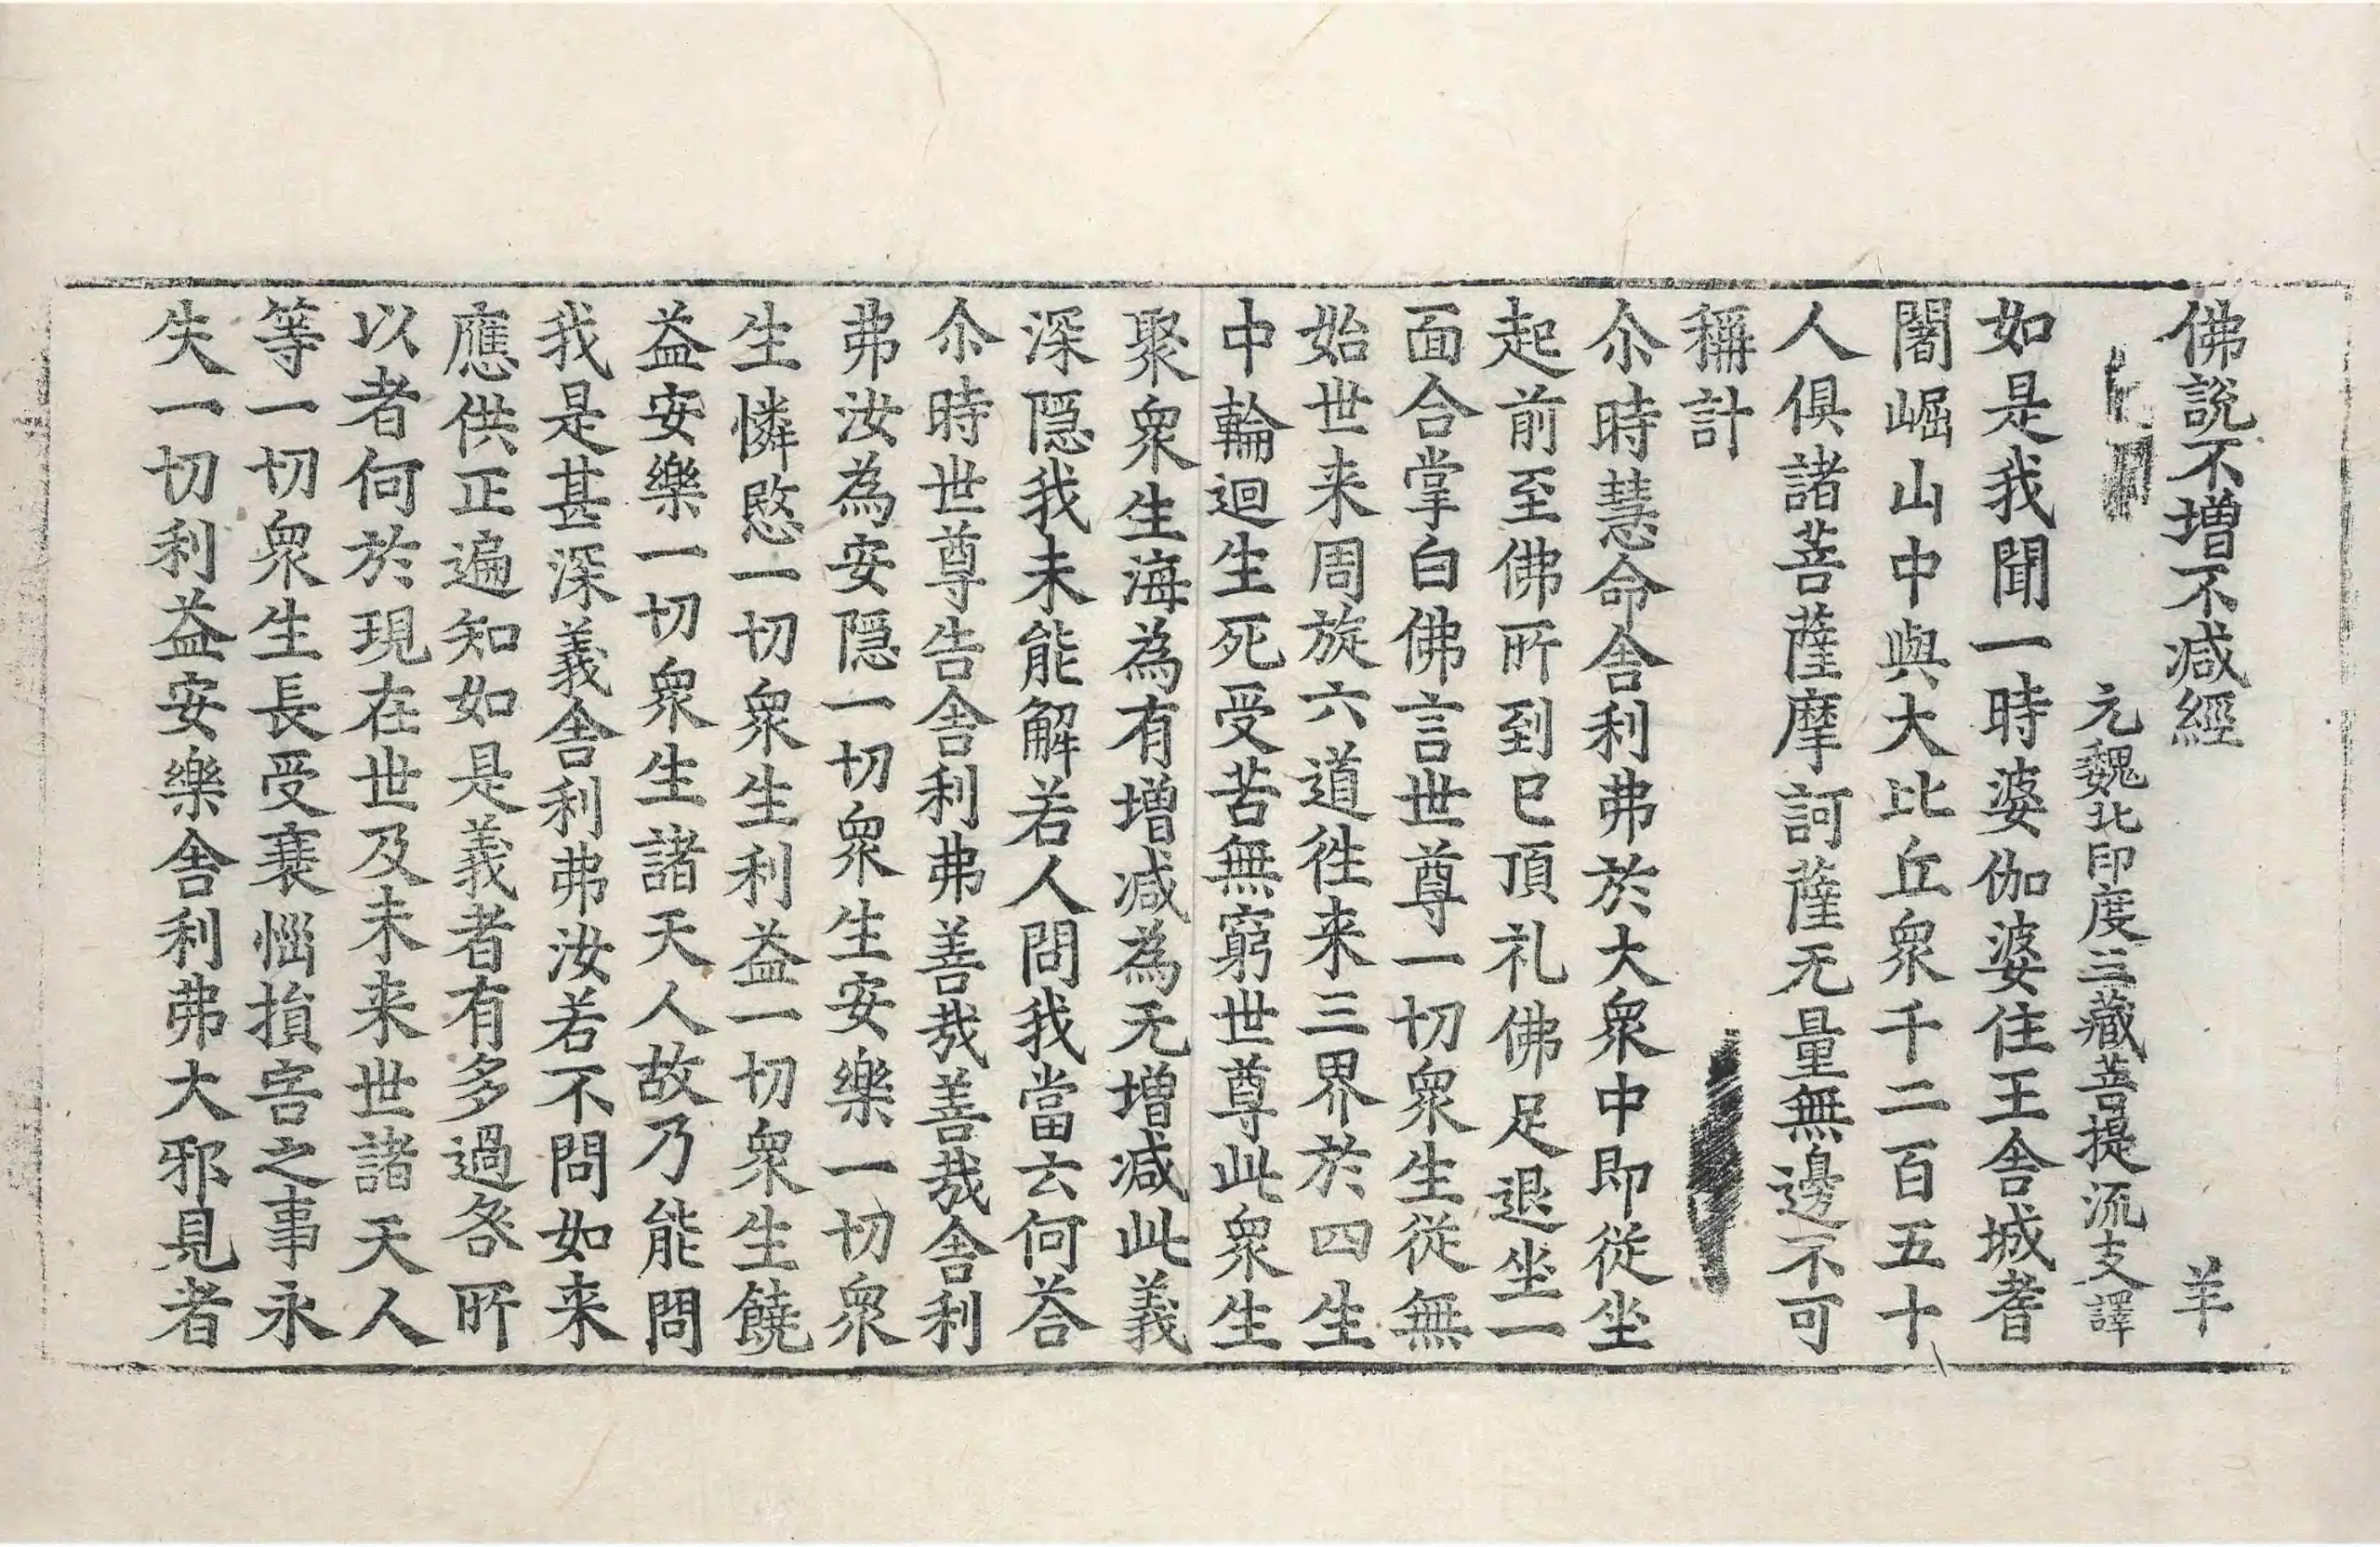 佛說不增不减經 羊
元魏北印度三藏菩提流支譯
如是我聞一時婆伽婆住王舍城耆
闍崛山中與大比丘衆千二百五十
人俱諸菩薩摩訶薩无量無邊不可
稱計
尒時慧命舍利弗於大衆中即從坐
起前至佛所到已頂礼佛足退坐一
面合掌白佛言世尊一切衆生從無
始世来周旋六道徃来三界於四生
中輪迴生死受苦無窮世尊此衆生
聚衆生海為有增减為无增减此義
深隱我未能解若人問我當云何荅
尒時世尊告舍利弗善哉善哉舍利
弗汝為安隱一切衆生安樂一切衆
生憐愍一切衆生利益一切衆生饒
益安樂一切衆生諸天人故乃能問
我是甚深義舍利弗汝若不問如来
應供正遍知如是義者有多過咎所
以者何於現在世及未来世諸天人
等一切衆生長受衰惱損害之事永
失一切利益安樂舍利弗大邪見者